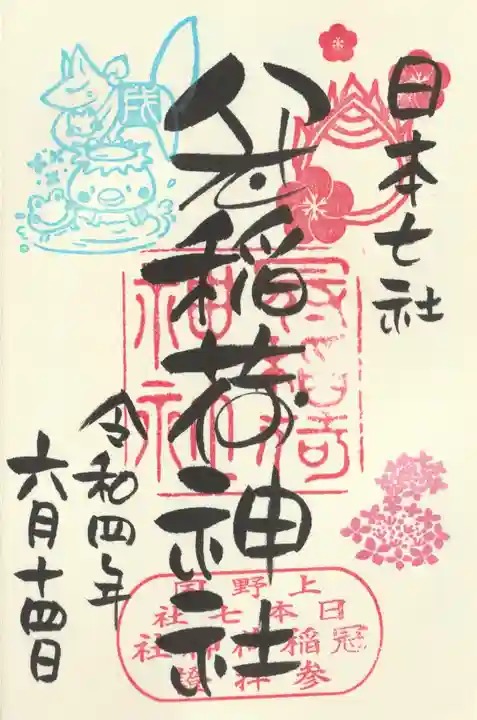 日本七社
冠稲荷神社
令和四年
六月十四日
戌
上野国
日本七社
冠稲荷神社
参拝證